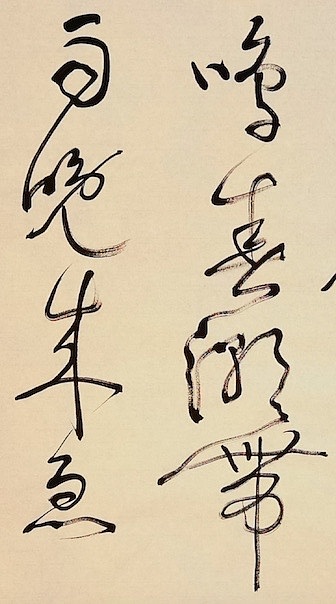 鳴春潮帶
雨晚來急